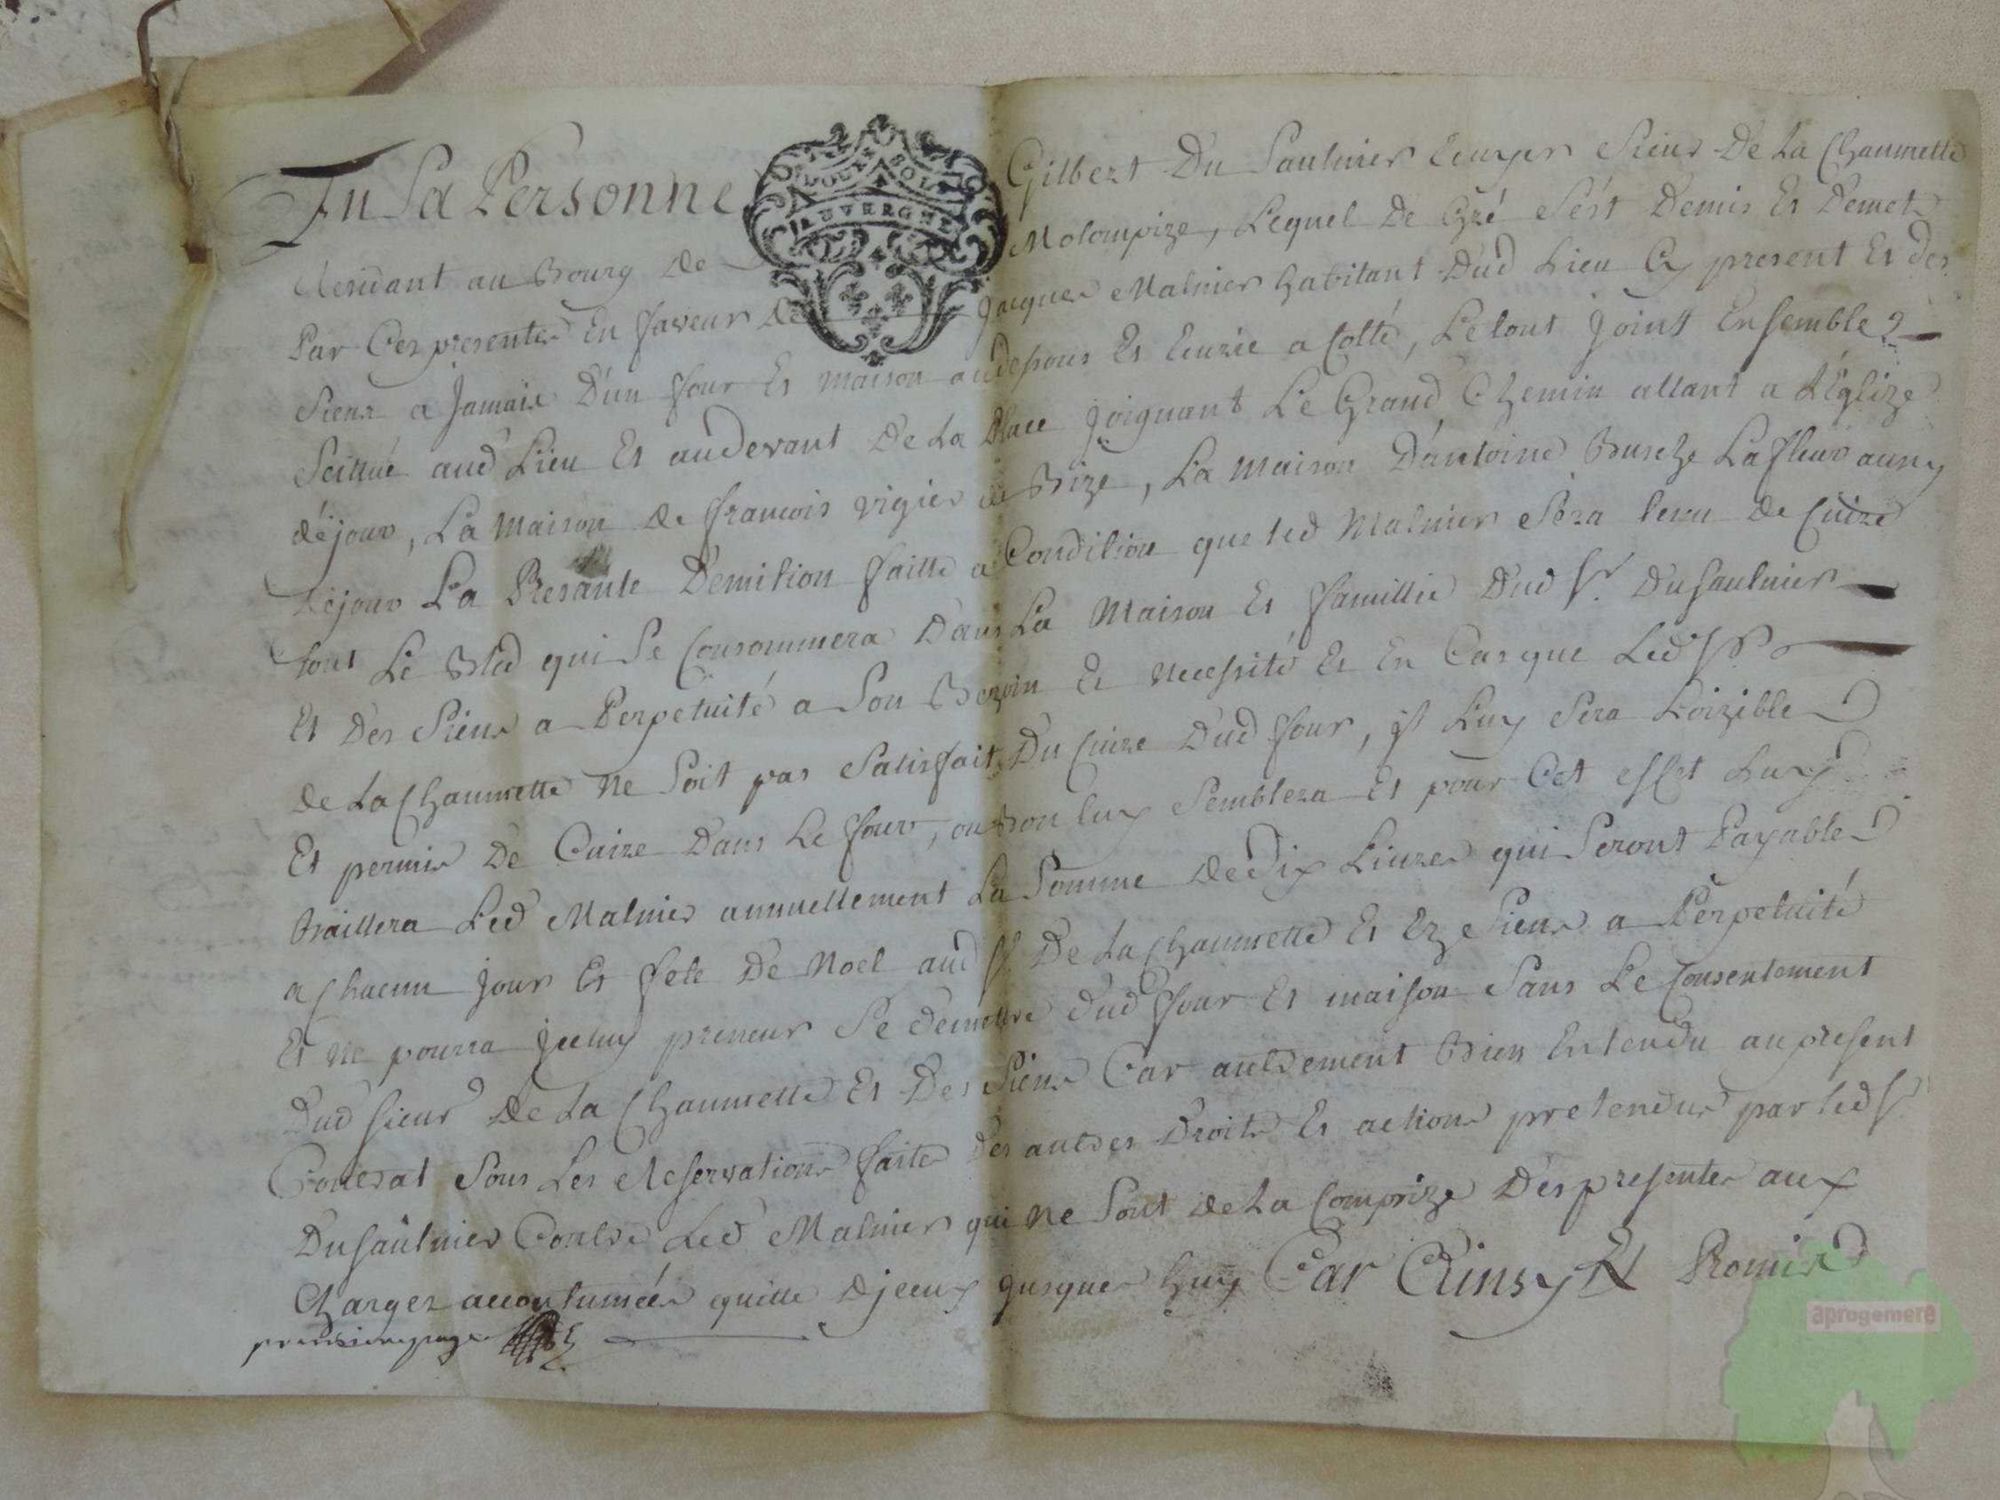 Fu La Personne Gilbert Du Saulnier Ecuyer Sieur De La Chaumette
DOUZE SOLS
AUVERGNE
Residant au Bourg de Molompize, Lequel De Gré S'ést Demis Et Demet
Par Ces presentes En faveur de Jacques Malnier habitant Dud Lieu Cy present Et des
Siens a Jamais D'un four Et maison audessous Et Ecurie a Cotté, Le tout Joint Ensemble
Scittué aud Lieu Et audevant De La Place Joignant Le Grand Chemin allant a L'Eglize
déjour, La Maison de francois vigier de Bize, La Maison D'antoine La fleur
déjour La Presante Demition faitte a Condition que led Malnier Sera tenu de Cuire
tout Le Bled qui Se Consommera Dans La Maison Et famillie Dud Sr. Dusaulnier
Et Des Siens a Perpetuité a Son Bezoin Et necessité Et En Cas que Led Sr
de La Chaumette Ne Soit pas Satisfait Du Cuire Dud four, il Luy Sera Loizible
Et permis De Cuire Dans Le four, ou Bon luy Semblera Et pour Cet effet Luy
Baillera Led Malnier annuellement La Somme de dix Livres qui Seront Payables
a Chacun Jour Et fete De Noel aud Sr De La Chaumette Et Ez Siens a Perpetuité
Et Ne pourra Iceluy preneur Se demettre dud four Et maison Sans Le Consentement
Dud Sieur De La Chaumette Et Des Siens Car autrement Bien Entendu au present
Contrat Sous Les Reservations faites Des autres Droits Et actions pretendus par led Sr
Dusaulnier Contre Led Malnier qui Ne Sont de La Comprize Des presentes aux
Charges accoutumées quitte Djceux Jusques huy Car Ainsy Et Promis
premiere page
aprogemere